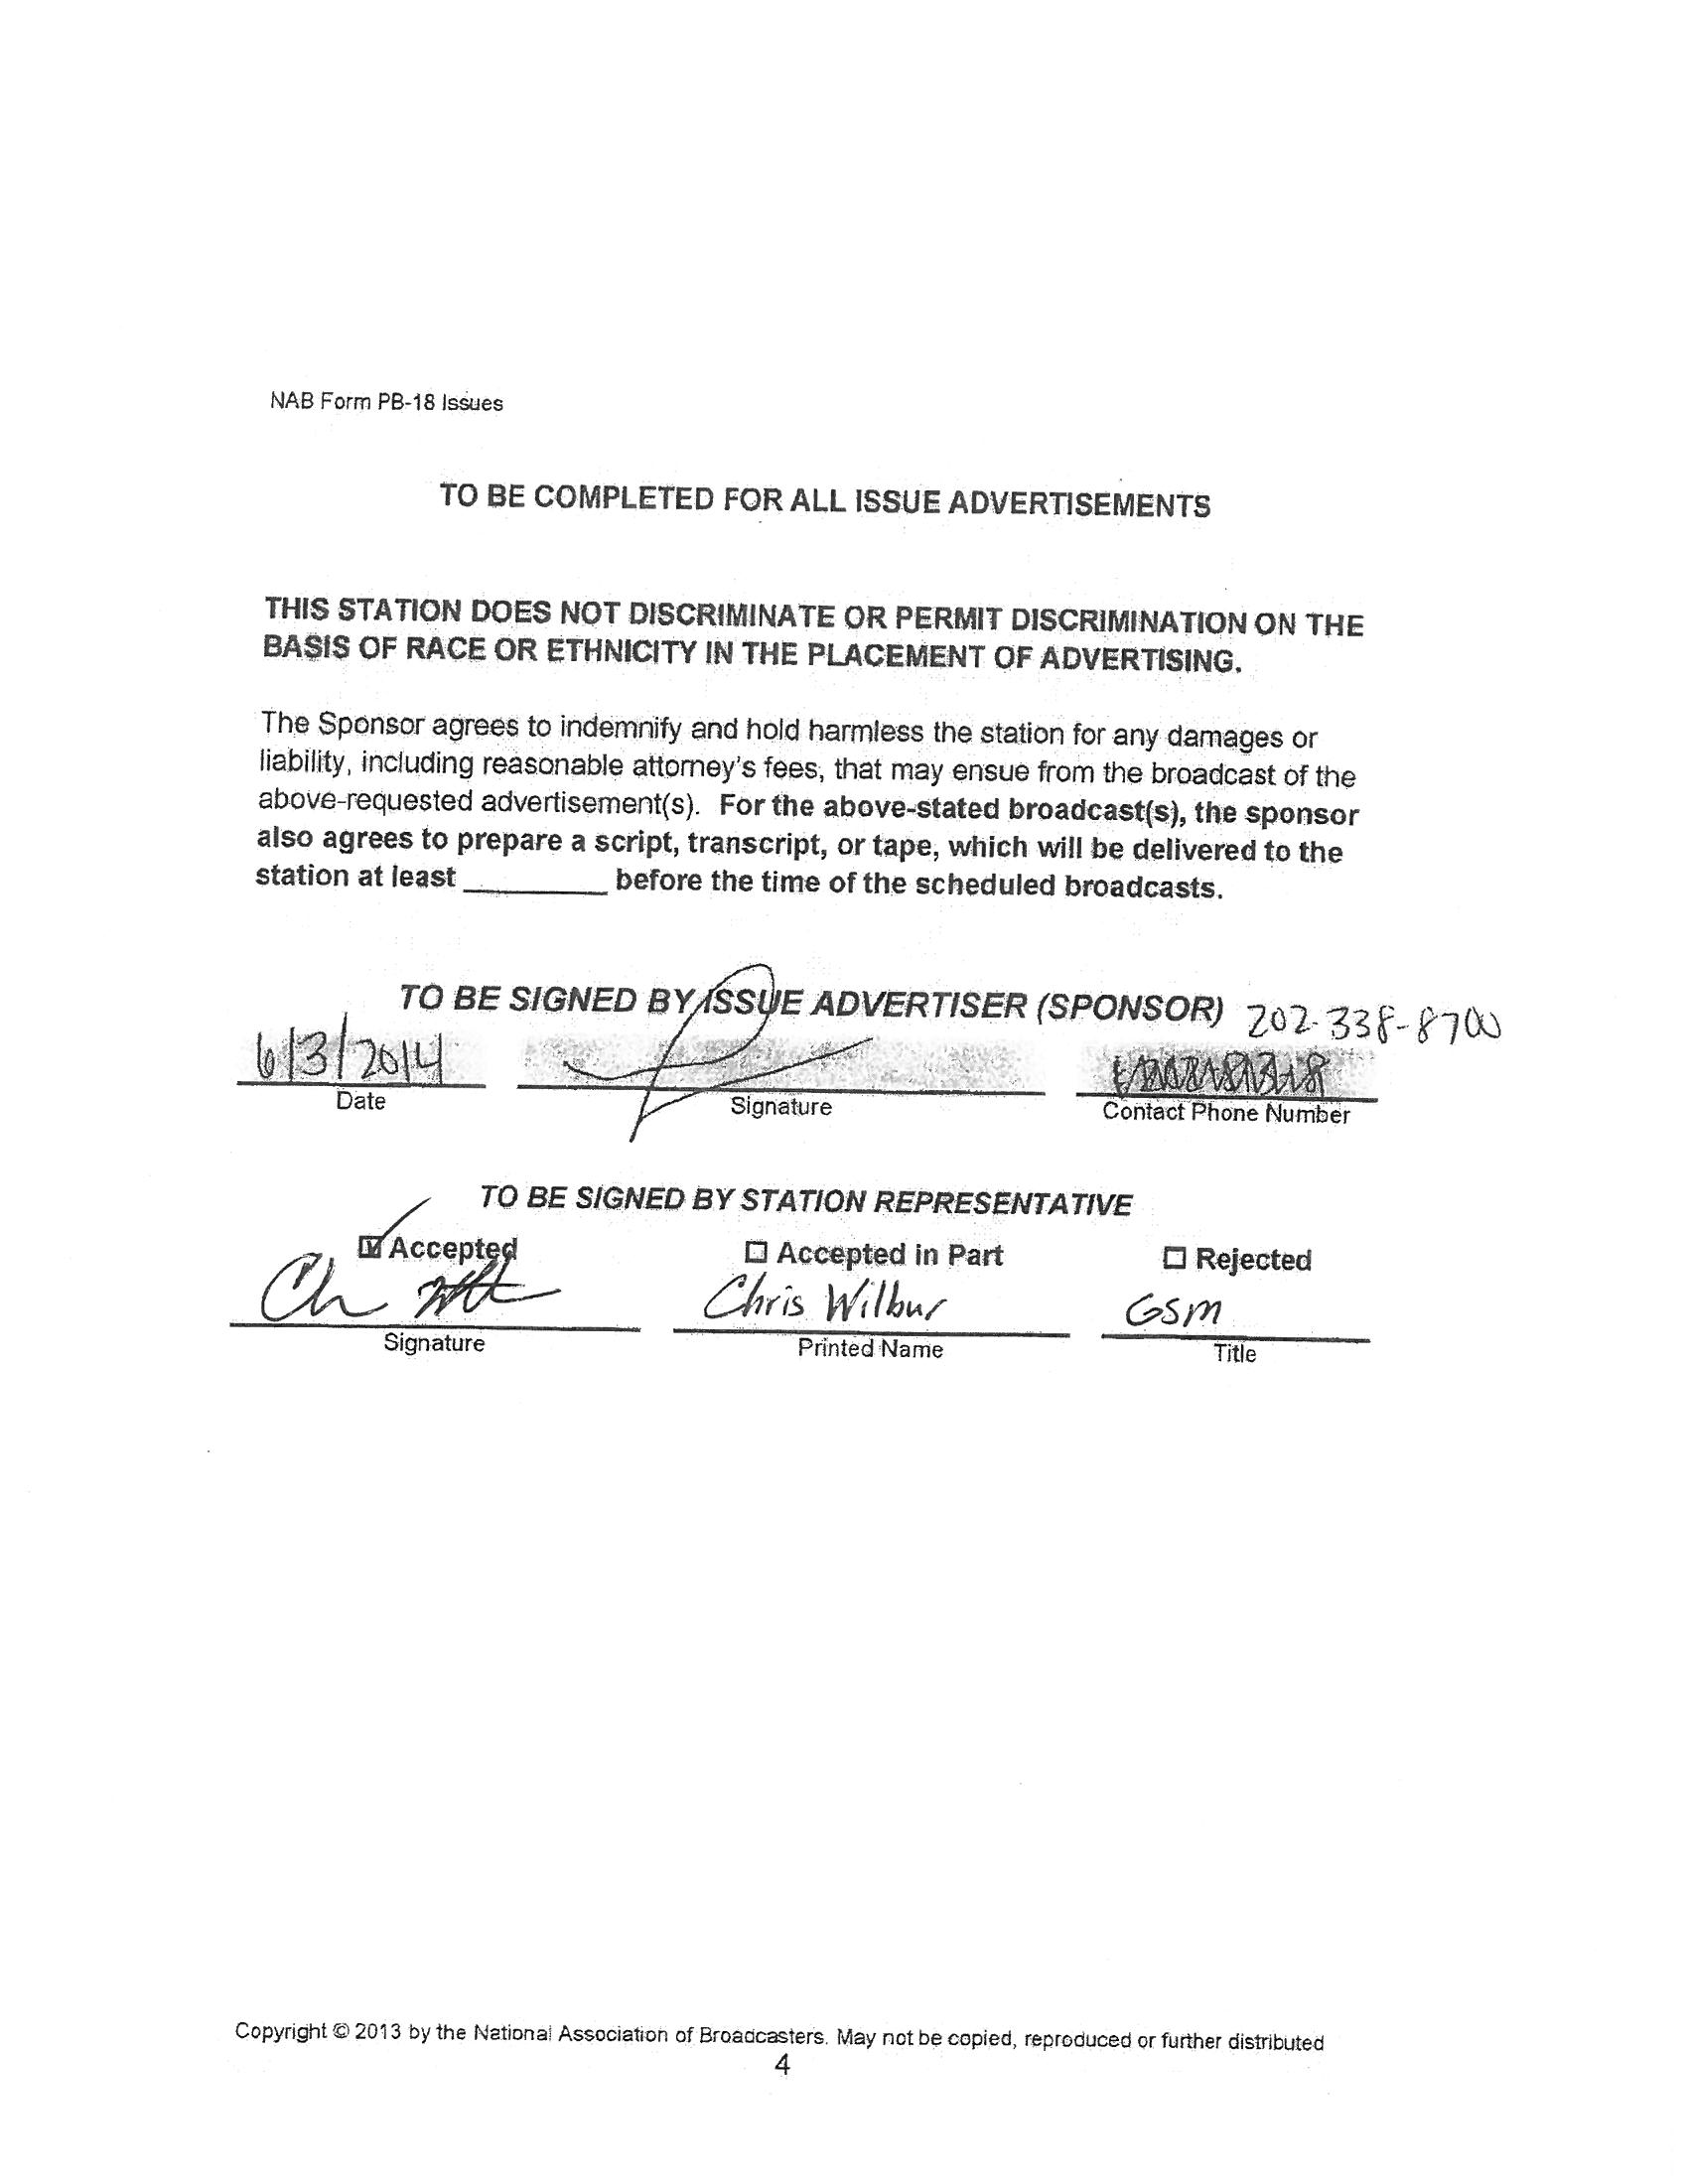 NAB Form PB-18 Issues
TO BE COMPLETED FOR ALL ISSUE ADVERTISEMENTS
THIS STATION DOES NOT DISCRIMINATE OR PERMIT DISCRIMINATION ON THE
BASIS OF RACE OR ETHNICITY IN THE PLACEMENT OF ADVERTISING.
The Sponsor agrees to indemnify and hold harmless the station for any damages or
liability, including reasonable attorney's fees, that may ensue from the broadcast of the
above-requested advertisement(s). For the above-stated broadcast(s), the sponsor
also agrees to prepare a script, transcript, or tape, which will be delivered to the
station at least ________ before the time of the scheduled broadcasts.
TO BE SIGNED BY ISSUE ADVERTISER (SPONSOR) 202-338-8700
6/3/2014
Date Signature Contact Phone Number
TO BE SIGNED BY STATION REPRESENTATIVE
☑ Accepted ☐ Accepted in Part ☐ Rejected
Chris Wilbur GSM
Signature Printed Name Title
Copyright © 2013 by the National Association of Broadcasters. May not be copied, reproduced or further distributed
4